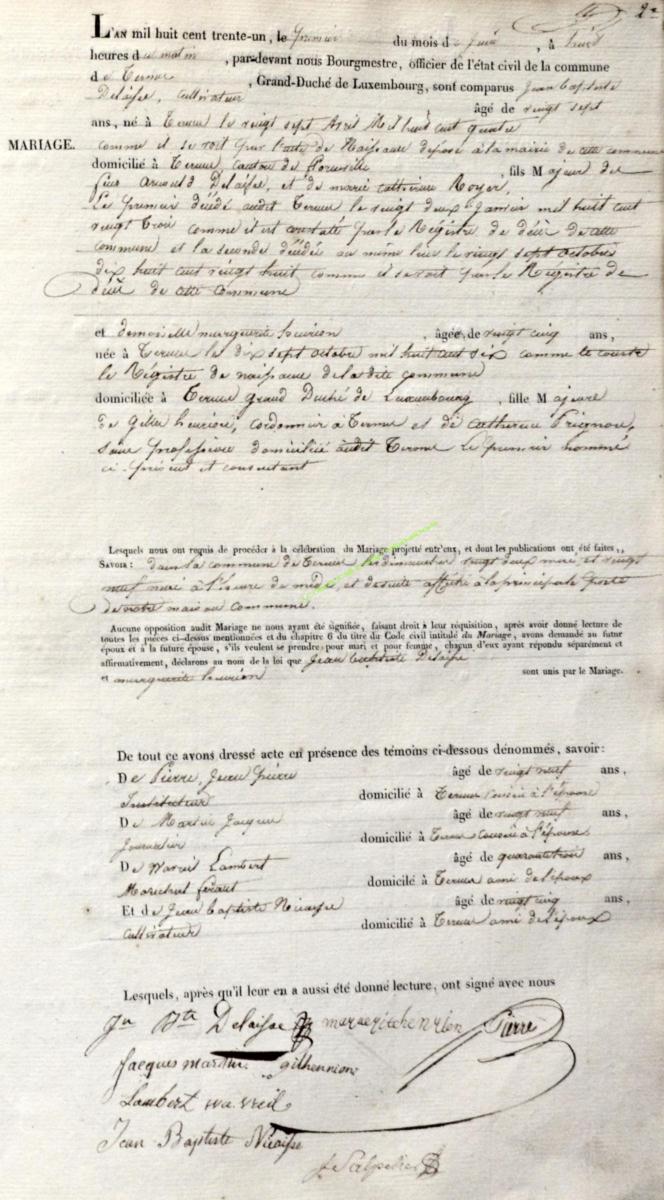 2e
L'AN mil huit cent trente-un, le premier du mois de juin, à huit
heures du matin, par-devant nous Bourgmestre, officier de l'état civil de la commune
de Termes, Grand-Duché de Luxembourg, sont comparus Jean Baptiste
Delaisse, cultivateur âgé de vingt sept
ans, né à Termes le vingt sept Avril Mil huit cent quatre
MARIAGE.
comme il se voit par l'acte de Naissance déposé à la mairie de cette commune
domicilié à Termes, canton de , fils Majeur de
feus Arnould Delaisse, et de marie catherine Noyer,
Le premier décédé audit Termes le vingt deux janvier mil huit cent
vingt trois comme il est constaté par le Régistre de décès de cette
commune et la seconde décédée au même lieu le vingt sept octobre
dix huit cent vingt huit comme il se voit par le Régistre de
décès de cette commune
et demoiselle marguerite henrion, âgée, de vingt cinq ans,
née à Termes le dix sept octobre mil huit cent six comme le conste
le Régistre de naissance de la dite commune
domiciliée à Termes grand Duché de Luxembourg, fille Majeure
de Gilles henrion, cordonnier à Termes et de catherine Prignon,
sans profession domiciliée audit Termes Le premier nommé
ci-présent et consentant
Lesquels nous ont requis de procéder à la célébration du Mariage projetté entr'eux, et dont les publications ont été faites,
SAVOIR: dans la commune de Termes les dimanches vingt deux mai et vingt
neuf mai à l'heure de midi, et desuite affiché à la principale porte
de notre maison Commune.
Aucune opposition audit Mariage ne nous ayant été signifiée, faisant droit à leur réquisition, après avoir donné lecture de
toutes les pièces ci-dessus mentionnées et du chapitre 6 du titre du Code civil intitulé du Mariage, avons demandé au futur
époux et à la future épouse, s'ils veulent se prendre pour mari et pour femme, chaqun d'eux ayant répondu séparément et
affirmativement, déclarons au nom de la loi que Jean baptiste Delaisse
et marguerite henrion sont unis par le Mariage.
De tout ce avons dressé acte en présence des témoins ci-dessous dénommés, savoir:
De Pierre, Jean Pierre âgé de vingt neuf ans,
Instituteur domicilié à Termes cousin à l'épouse
De Martin Jacques âgé de vingt neuf ans,
Journalier domicilié à Termes cousin à l'épouse
De Wavreil Lambert âgé de quarante trois ans,
Maréchal ferant domicilé à Termes ami de l'époux
Et de Jean baptiste Nicaise âgé de vingt cinq ans,
cultivateur domicilié à Termes ami de l'époux
Lesquels, après qu'il leur en a aussi été donné lecture, ont signé avec nous
Jn Bte Delaisse margeritehenrien Pierre
Jacques martin gilhennion
Lambert wavreil
Jean Baptiste Nicaise